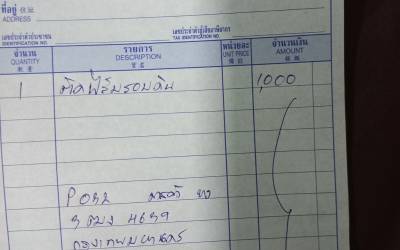 ที่อยู่ 住址
ADDRESS
เลขประจำตัวประชาชน
IDENTIFICATION NO.
เลขประจำตัวผู้เสียภาษีอากร
TAX IDENTIFICATION NO.
จำนวน รายการ หน่วยละ จำนวนเงิน
QUANTITY DESCRIPTION UNIT PRICE AMOUNT
數量 貨名 價目 銀碼
1 ติดฟิล์มรอบคัน 1,000
4639
กรุงเทพมหานคร